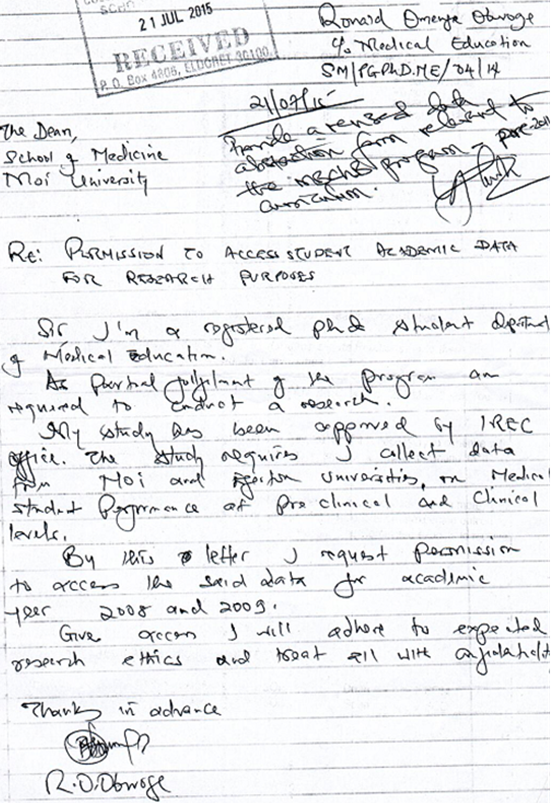 21 JUL 2015
RECEIVED
P.O. Box 4606, ELDORET 30100.
Ronald Omenge Obwoge
c/o Medical Education
SM/PGPhD.ME/04/14
21/07/15
Provide a revised data
abstraction form relevant to
the MBChB program - pre-2011
curriculum.
The Dean,
School of Medicine
Moi University
Re: PERMISSION TO ACCESS STUDENT ACADEMIC DATA
FOR RESEARCH PURPOSES
Sir I'm a registered PhD student department
of Medical Education.
As Partial fulfilment of the program am
required to conduct a research.
My study has been approved by IREC
office. The study requires I collect data
from Moi and Egerton Universities, on Medical
student Performance at Pre clinical and Clinical
levels.
By this letter I request Permission
to access the said data for academic
year 2008 and 2009.
Given access I will adhere to expected
research ethics and treat all with
Thanks in advance
R.O.Obwoge